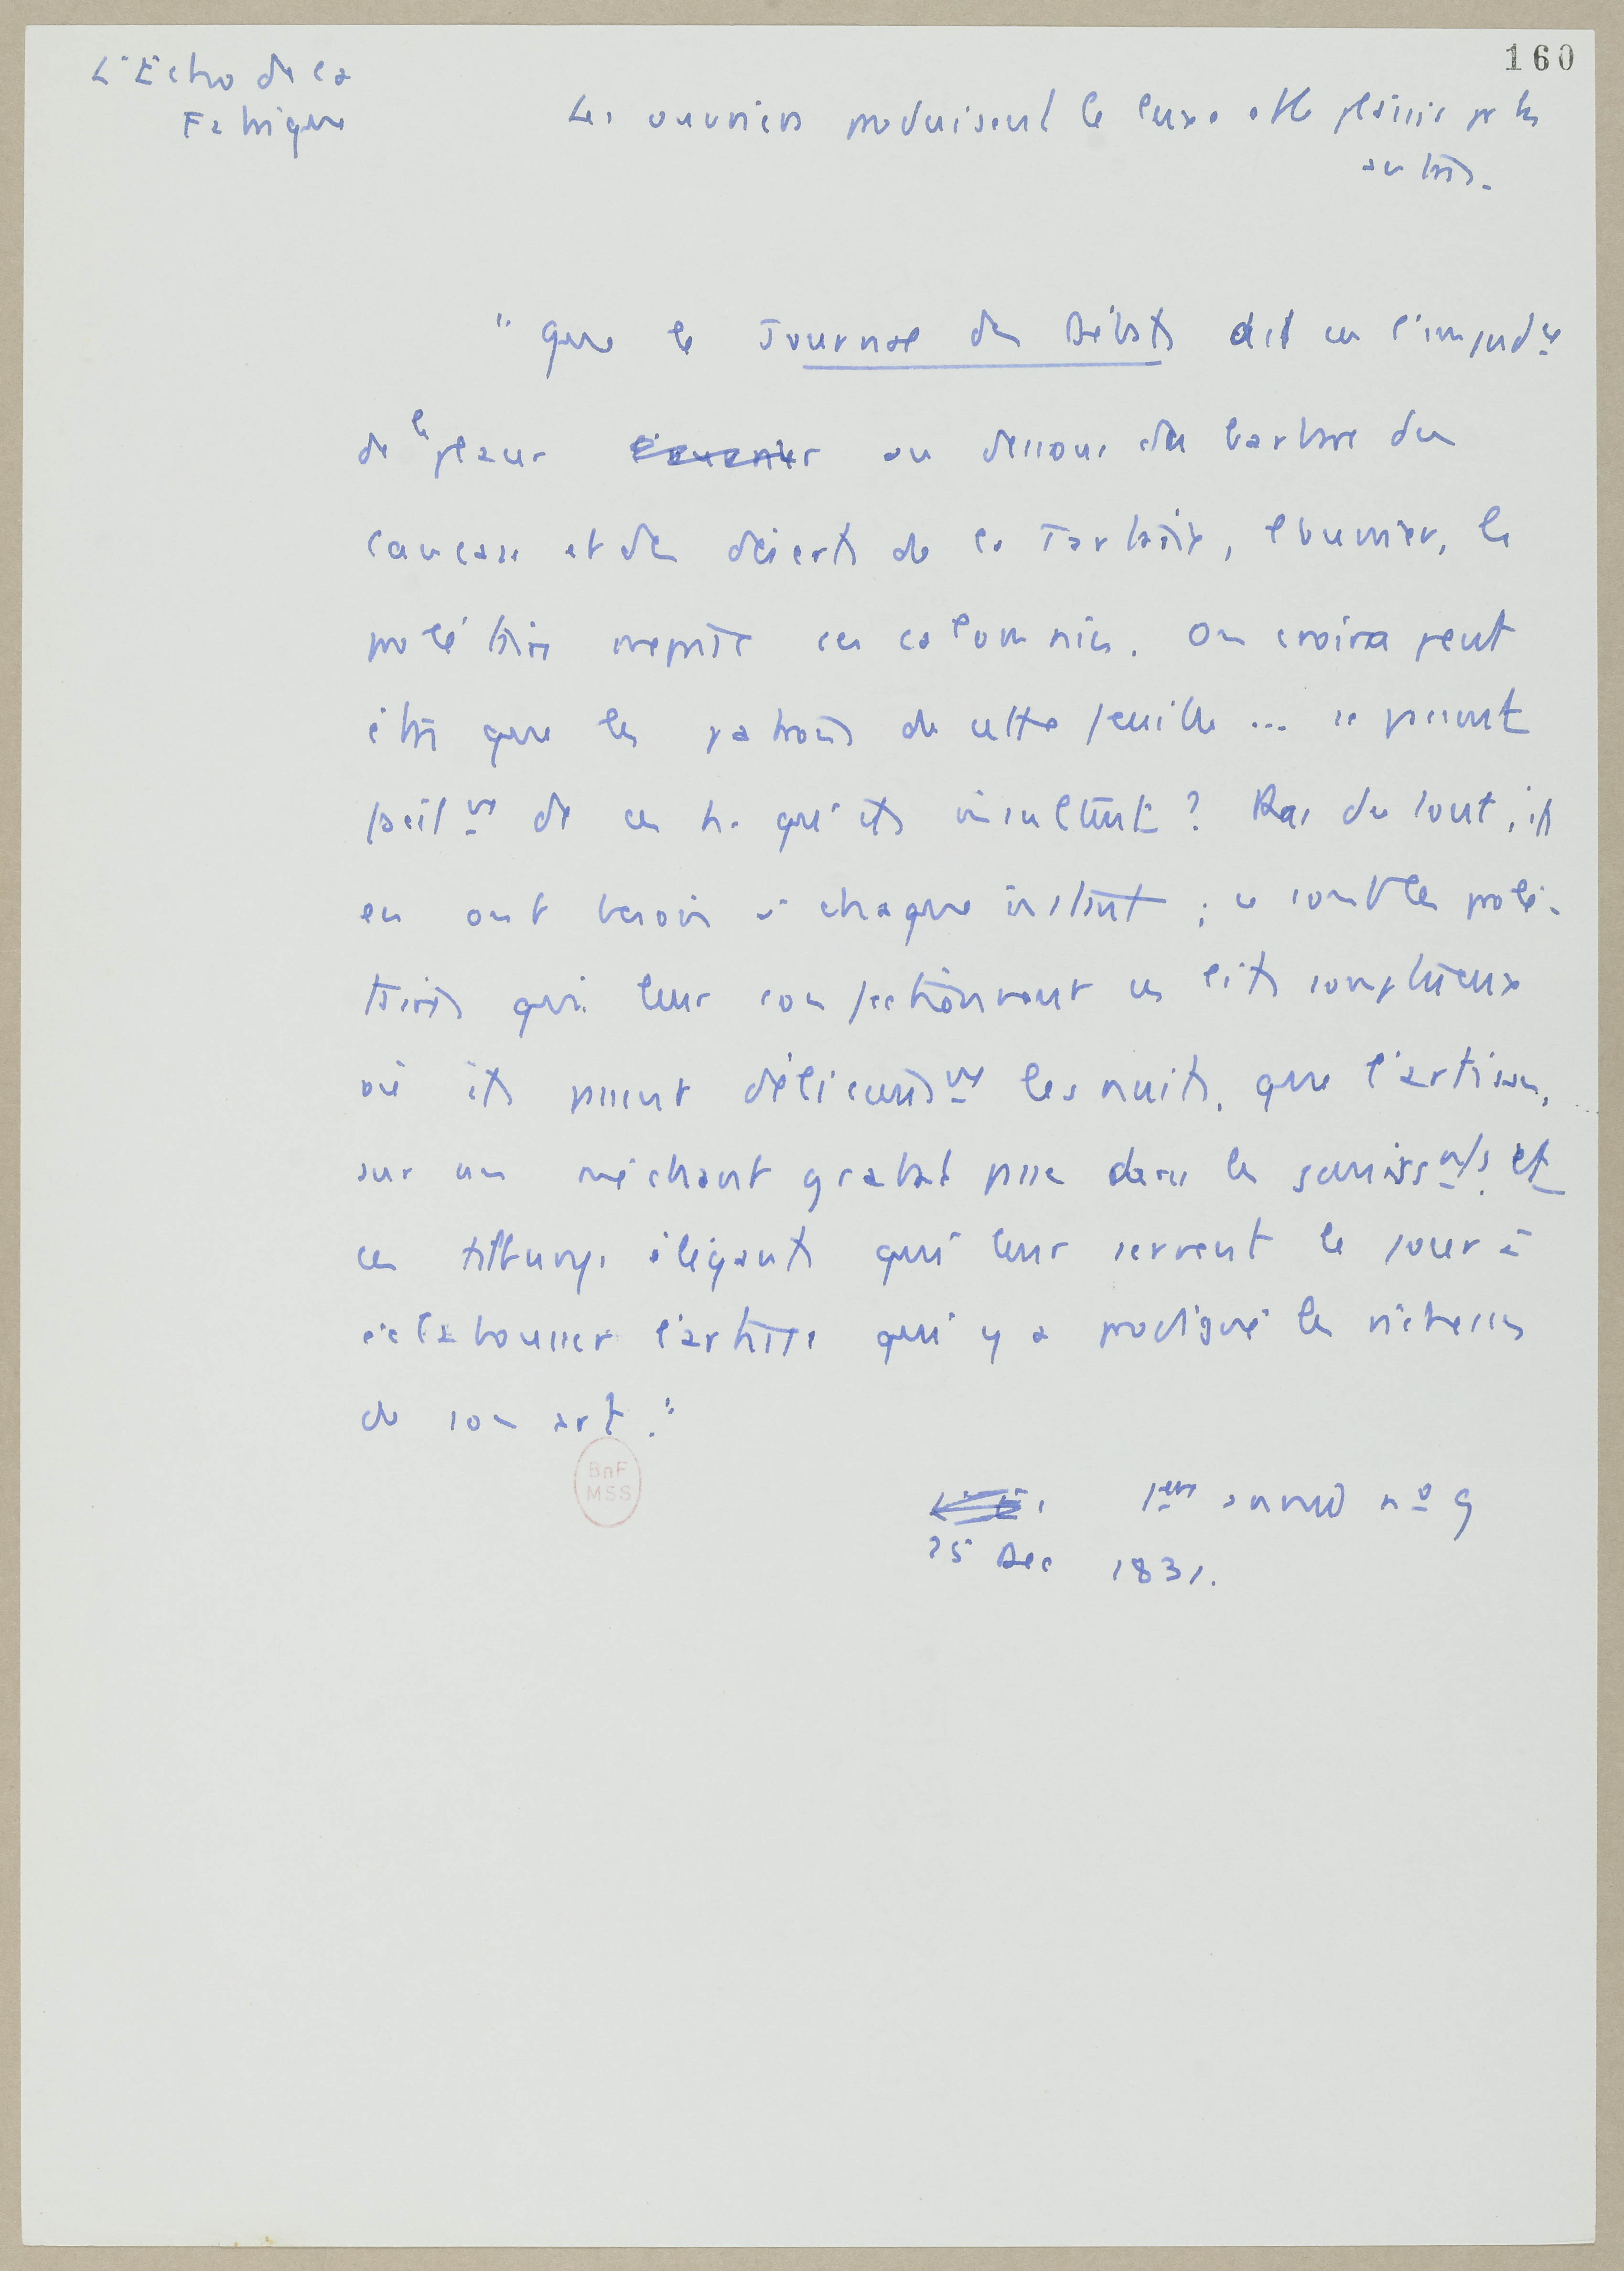 160
L'Echo de la
Fabrique
Les ouvriers produisent le luxe et le plaisir pr les
autres.
" Que le Journal des Débats ait eu l'impudce
de le placer l'ouvrier au dessous des barbares du
Caucase et des déserts de la Tartarie, l'ouvrier, le
prolétaire méprise ces calomnies. On croira peut
être que les patrons de cette feuille ... se passent
facilmt de ces h. qu'ils insultent ? Pas du tout, ils
en ont besoin à chaque instant ; ce sont les prolé-
taires qui leur confectionnent ces lits somptueux
où ils passent délicieusmt les nuits, que l'artisan,
sur un méchant grabat passe dans les gémissmts. et
ces tilburys élégants qui leur servent le jour à
éclabousser l'artiste qui y a prodigué les richesses
de son art."
1ère année nº 9
25 Dec 1831.
BnF
MSS